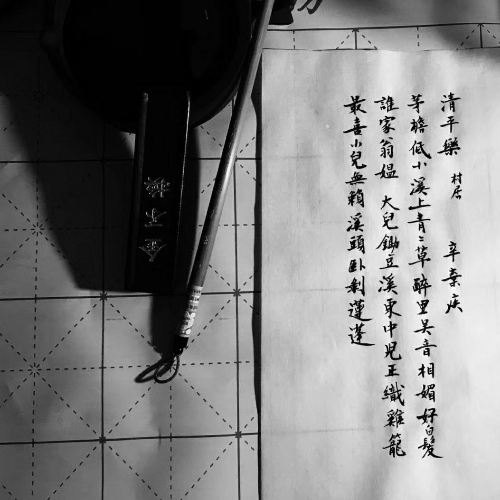 清平樂 村居 辛棄疾
茅檐低小溪上青〻草醉里吴音相媚好白髮
誰家翁媪 大兒鋤豆溪東中兒正織雞籠
最喜小兒無賴溪頭卧剥蓮蓬
金不換